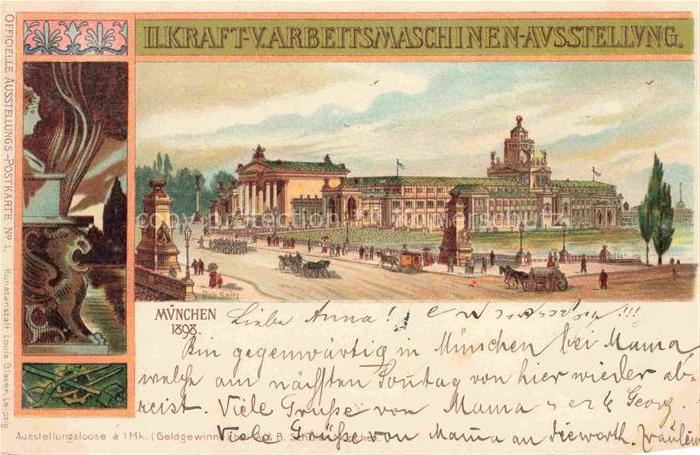 II. KRAFT- V. ARBEITSMASCHINEN-AVSSTELLVNG.
OFFICIELLE AUSSTELLUNGS-POSTKARTE No 1.
Kunstanstalt Louis Glaser, Leipzig
MVNCHEN
1898.
Liebe Anna!
Bin gegenwärtig in München bei Mama
welche am nächsten Sonntag von hier wieder ab-
reist. Viele Grüße von Mama Georg.
Viele Grüße von Mama an
Ausstellungsloose à 1 Mk. (Geldgewinne)
copyright protection